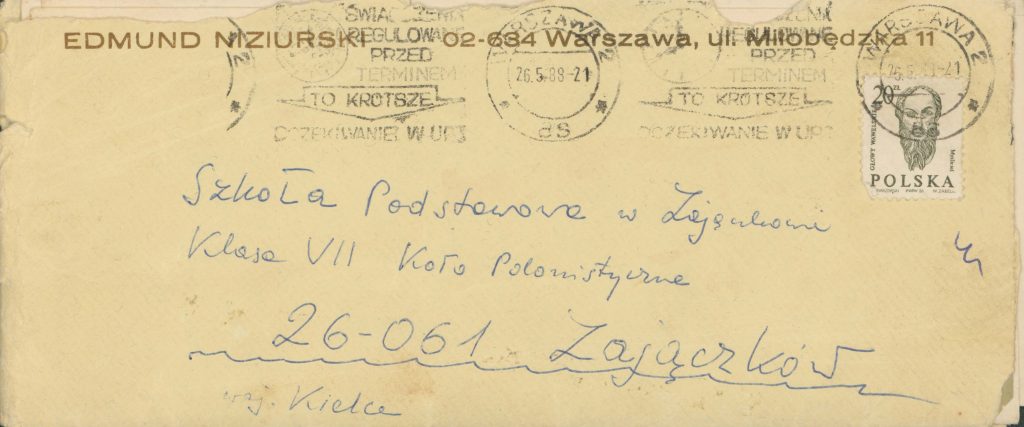 EDMUND NIZIURSKI 02-634 Warszawa, ul. Miłobędzka 11
REGULOWANE
PRZED
TERMINEM
TO KRÓTSZE
OCZEKIWANIE W UPT
WARSZAWA 2
26.5.88-21
dS
REGULOWANE
PRZED
TERMINEM
TO KRÓTSZE
OCZEKIWANIE W UPT
WARSZAWA 2
26.5.88-21
20 zł
GŁOWY WAWELSKIE
POLSKA
Szkoła Podstawowa w Zajączkowie
Klasa VII Koło Polonistyczne
26-061 Zajączków
woj. Kielce